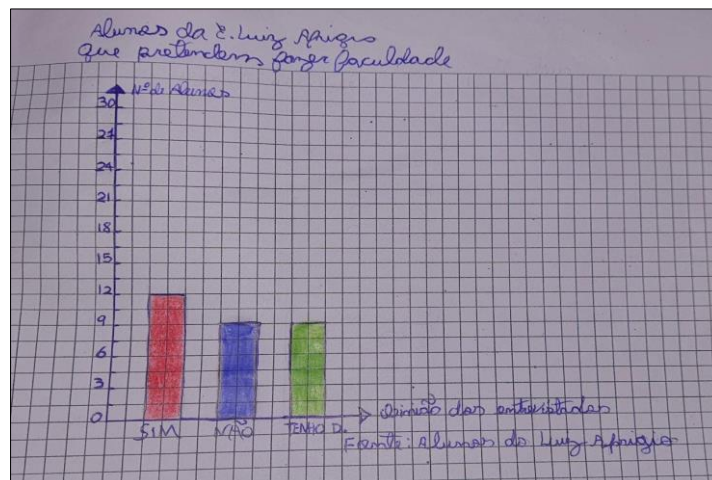 Alunas da E. Luiz Aprigio
que pretendem fazer faculdade
Nº de Alunas
30
27
24
21
18
15
12
9
6
3
0
SIM NÃO TENHO D.
Opinião das entrevistadas
Fonte: Alunas do Luiz Aprigio